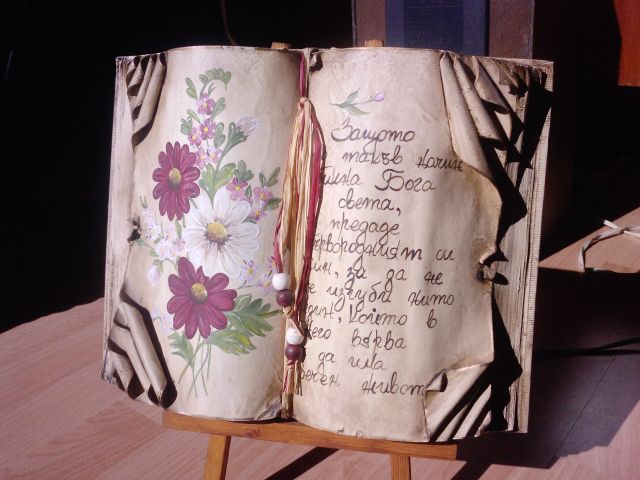 Защото
такъв начин
бикна Бога
света,
предаде
ървородният си
ин, за да не
е изгуби нито
дин, Който в
него вярва
да има
вечен живот